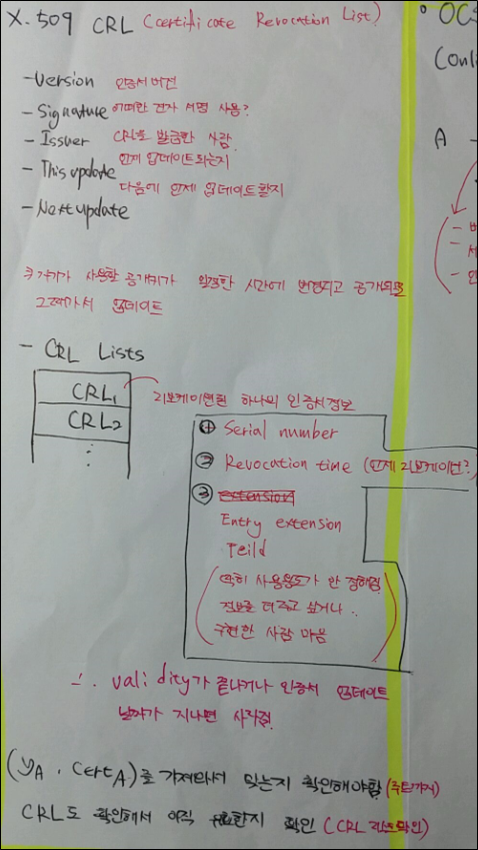 X.509 CRL (Certificate Revocation List)
- Version 인증서 버전
- Signature 어떠한 전자 서명 사용?
- Issuer CRL을 발급한 사람
- This update 언제 업데이트되는지
다음에 언제 업데이트할지
- Next update
사용할 공개키가 일정한 시간에 변경되고 공개되므로
그때가서 업데이트
- CRL Lists
CRL1 리보케이션된 하나의 인증서정보
CRL2
⋮
① Serial number
② Revocation time (언제 리보케이션?)
③ extension
Entry extension
Feild
(특히 사용용도가 안 정해짐
정보를 더 주고 싶거나
구현한 사람 마음)
∴ validity가 끝나거나 인증서 업데이트
날짜가 지나면 사라짐
(yA, CertA)를 가져와서 맞는지 확인해야함
CRL도 확인해서 아직 유효한지 확인 (CRL 리스트확인)
• OCS
(Onli
A -
- 버
- 서
- 인